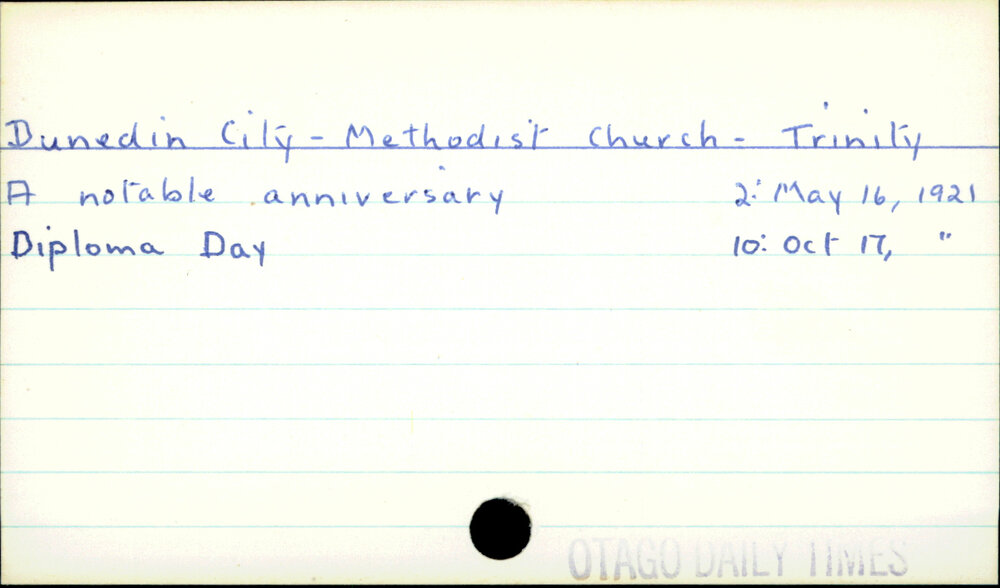 Dunedin City - Methodist Church - Trinity
A notable anniversary 2: May 16, 1921
Diploma Day 10: Oct 17, "
OTAGO DAILY TIMES